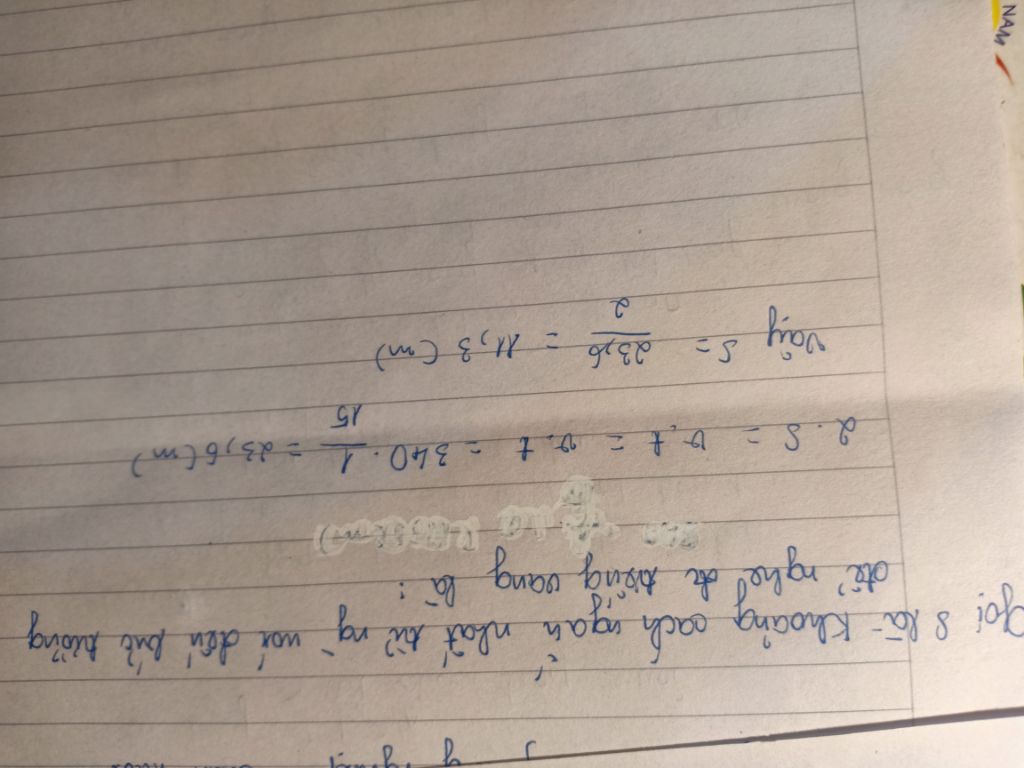 Gọi S là khoảng cách ngắn nhất từ ng nói đến bức tường
để nghe đc tiếng vang là:
2.S = v.t = v.t = 340. 1/15 = 23,6 (m)
Vậy S = 23,6/2 = 11,3 (m)
NAM